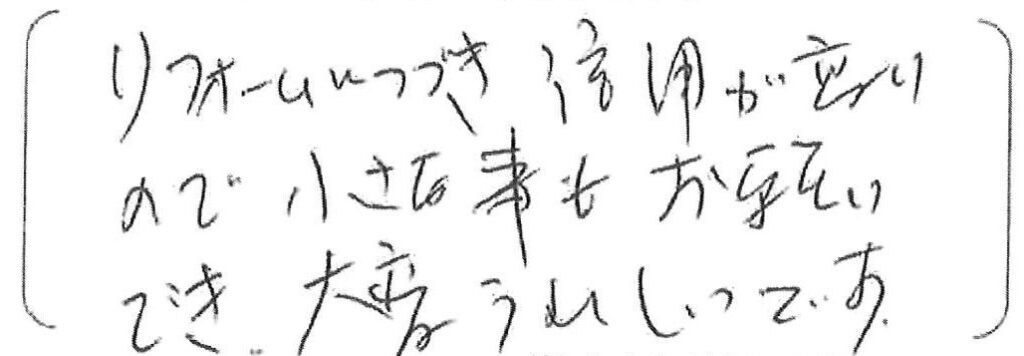 リフォームにつづき 信用が高い
ので 小さな事も お伝えい
でき、大変うれしいです。